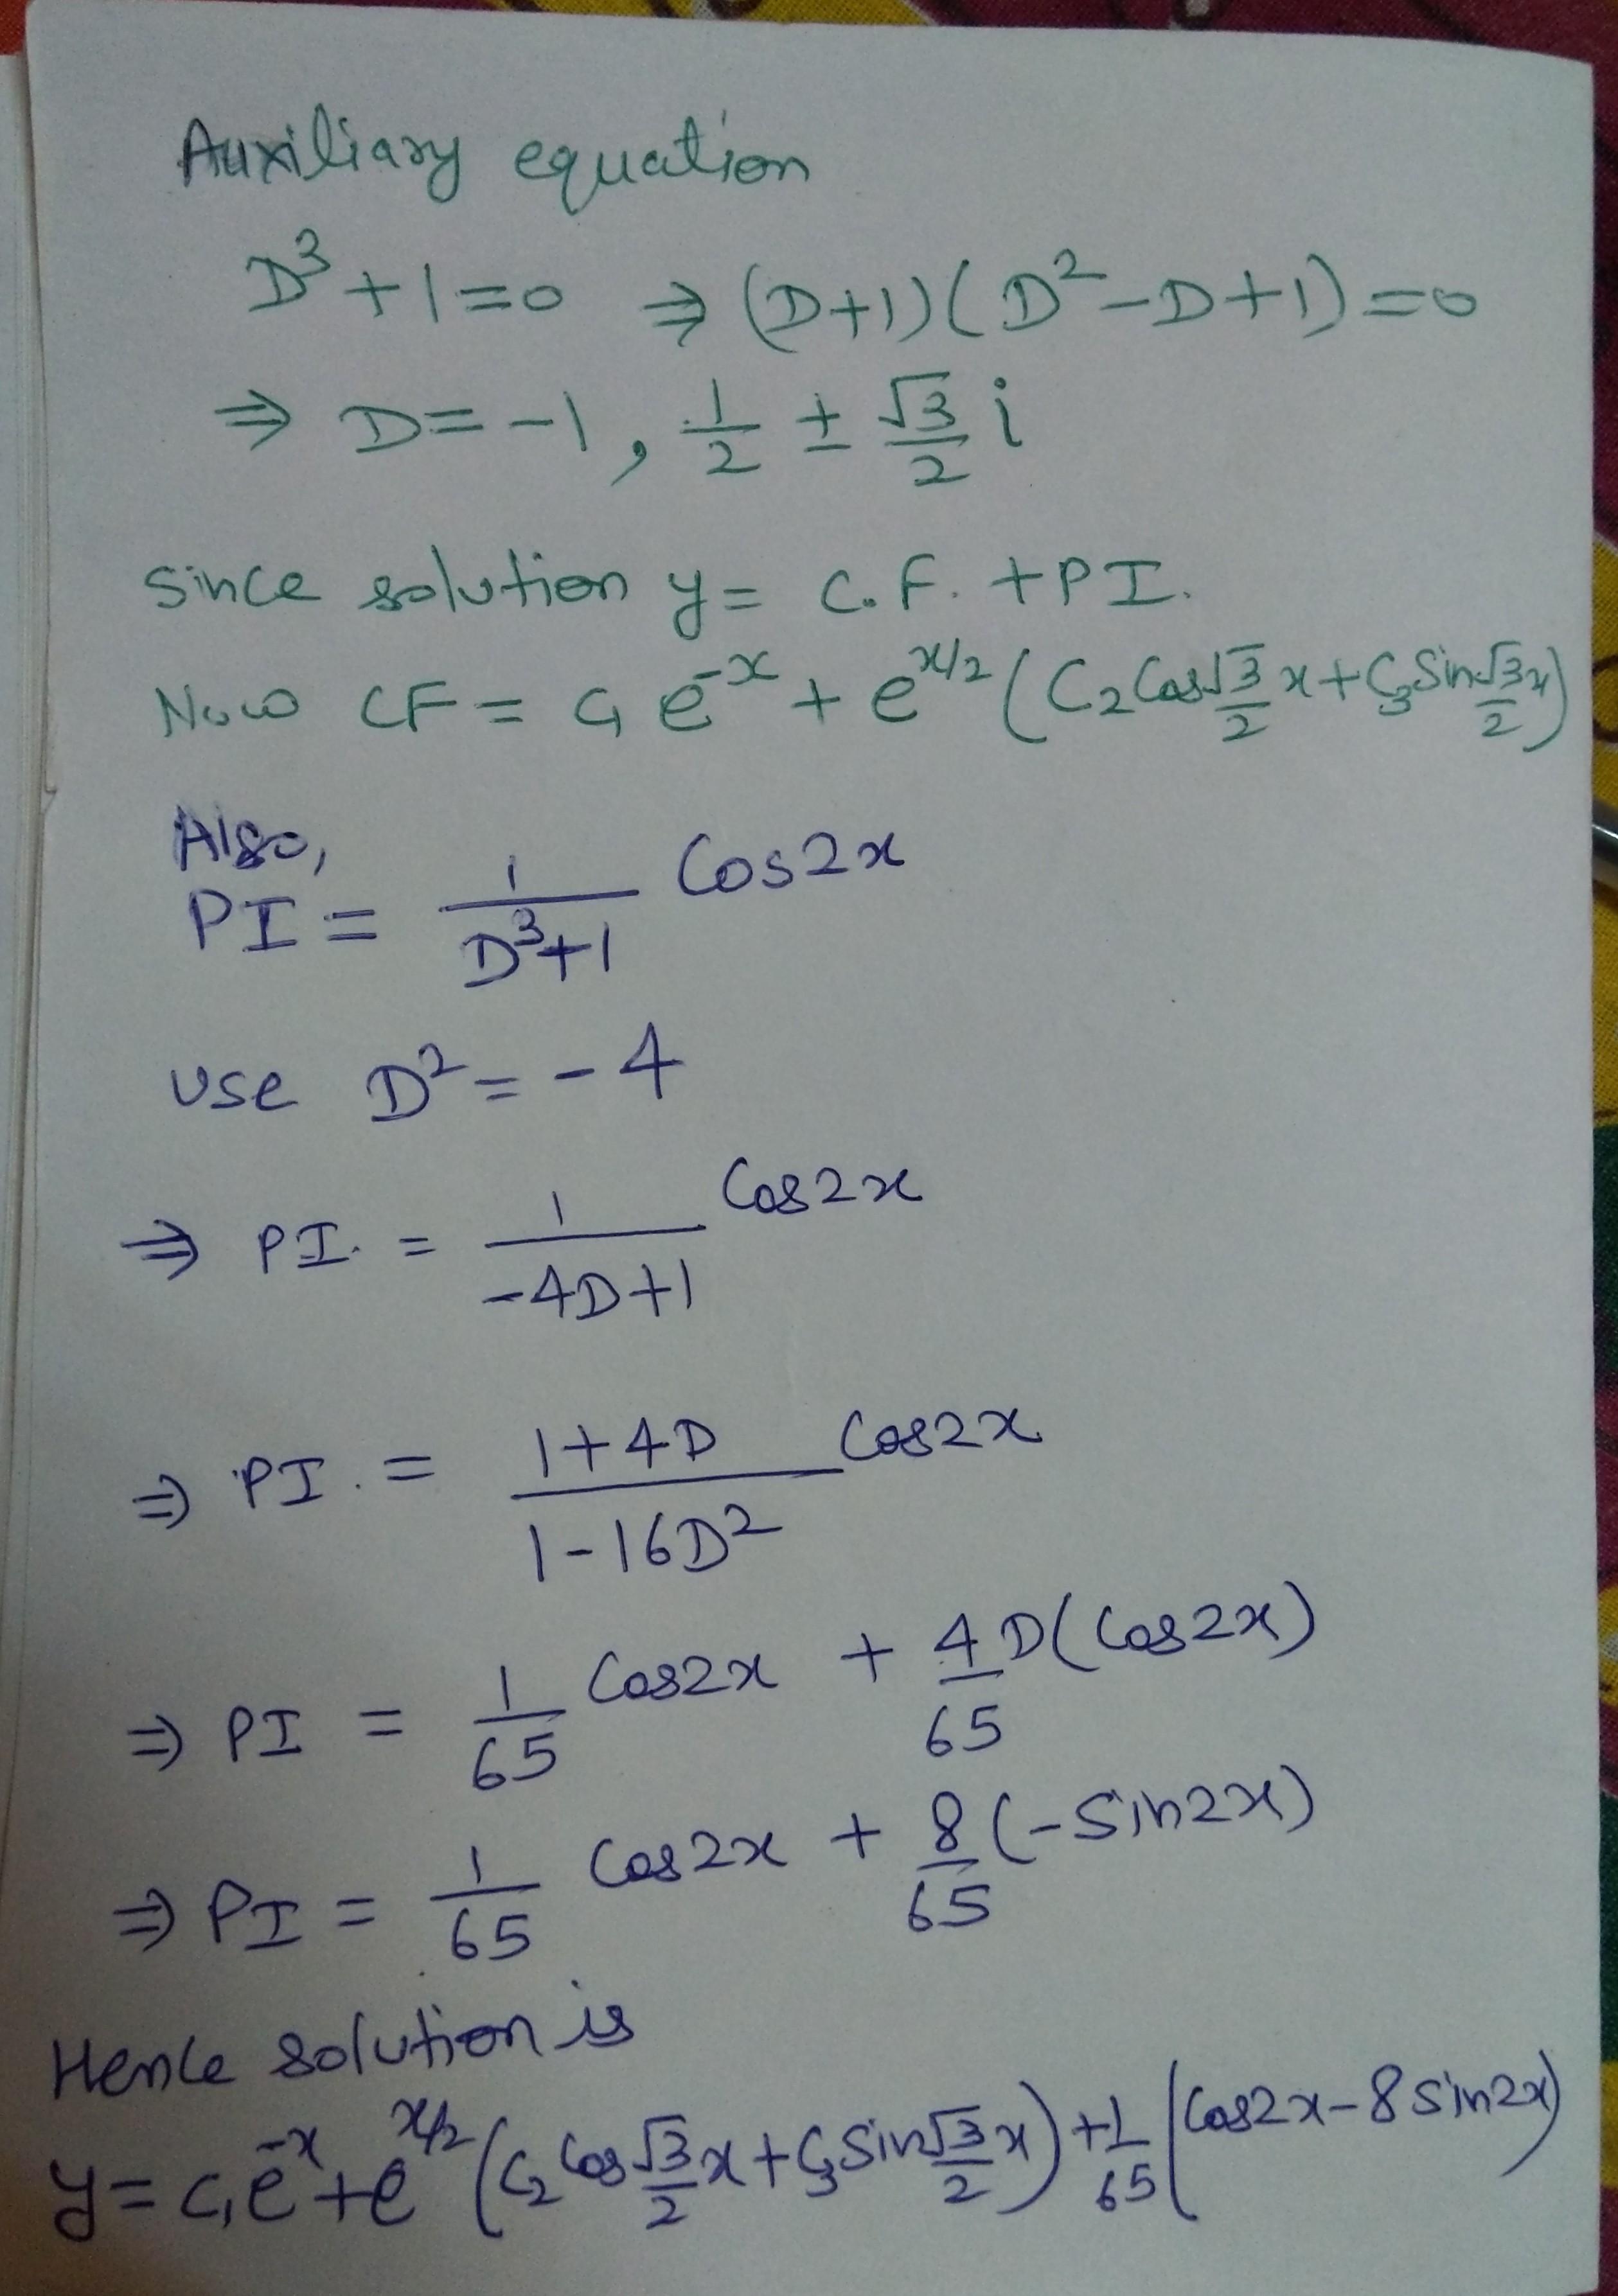 Auxiliary equation
D³+1=0 ⇒ (D+1)(D²-D+1)=0
⇒ D=-1, 1/2 ± √3/2 i
Since solution y= C.F. +PI.
Now CF = C₁e^-x + e^x/2 (C₂Cos√3/2 x+C₃Sin√3/2 x)
Also,
PI = 1/(D³+1) Cos2x
Use D²=-4
⇒ PI. = 1/(-4D+1) Cos2x
⇒ PI. = (1+4D)/(1-16D²) Cos2x
⇒ PI = 1/65 Cos2x + 4/65 D(Cos2x)
⇒ PI = 1/65 Cos2x + 8/65 (-Sin2x)
Hence solution is
y= C₁e^-x+e^x/2 (C₂Cos√3/2 x+C₃Sin√3/2 x)+1/65 (Cos2x-8Sin2x)